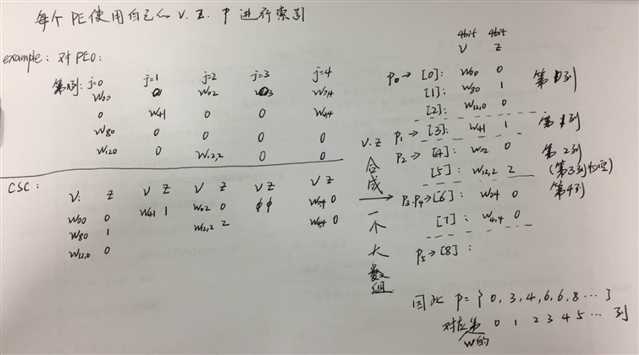 每个PE使用自己的 V. Z. P 进行索引
example: 对PE0:
第j列: j=0 j=1 j=2 j=3 j=4
W00 0 W02 W04
0 W41 0 0 W44
W80 0 0 0 0
W120 0 W12,2 0 0
CSC:
V: Z V Z V Z V Z V Z
W00 0 W41 1 W02 0 ϕ ϕ W04 0
W80 1 W12,2 2 W44 0
W12,0 0
V.Z 合成一个大数组
4bit 4bit
V Z
P0→ [0]: W00 0 第0列
[1]: W80 1
[2]: W12,0 0
P1→ [3]: W41 1 第1列
P2→ [4]: W02 0 第2列
[5]: W12,2 2 (第3列为空)
P3.P4→[6]: W04 0 第4列
[7]: W4,4 0
P5→[8]:
因此 P={0,3,4,6,6,8…}
对应第 0 1 2 3 4 5 … 列
W的